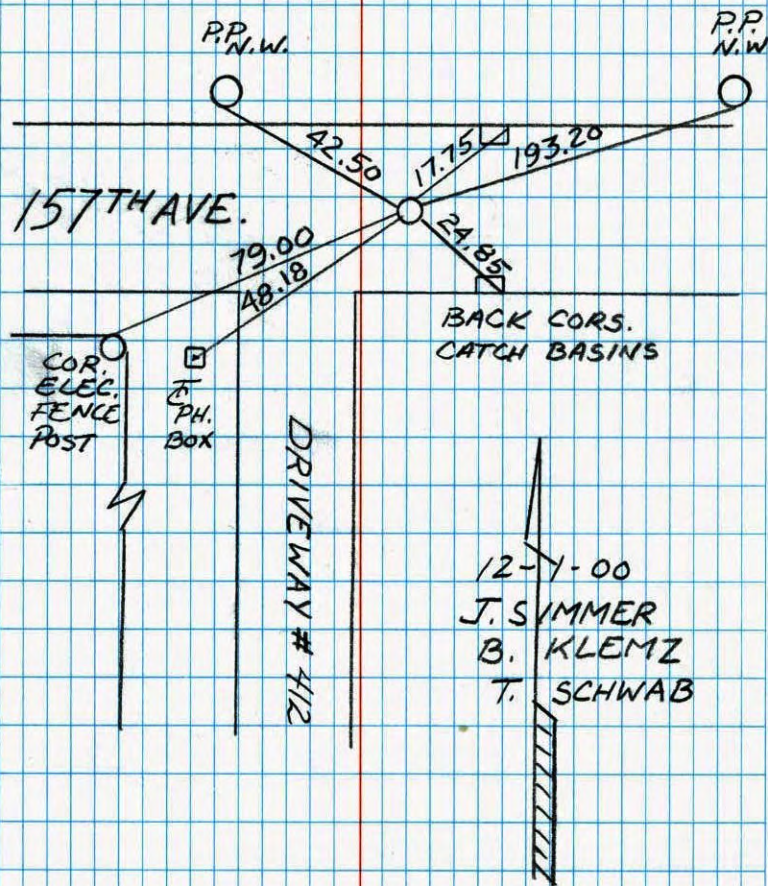 P.P.
N.W.
P.P.
N.W
42.50
17.75
193.20
157TH AVE.
79.00
48.18
24.85
BACK CORS.
CATCH BASINS
COR.
ELEC.
FENCE
POST
℄
PH.
BOX
DRIVEWAY # 412
12-1-00
J. SIMMER
B. KLEMZ
T. SCHWAB